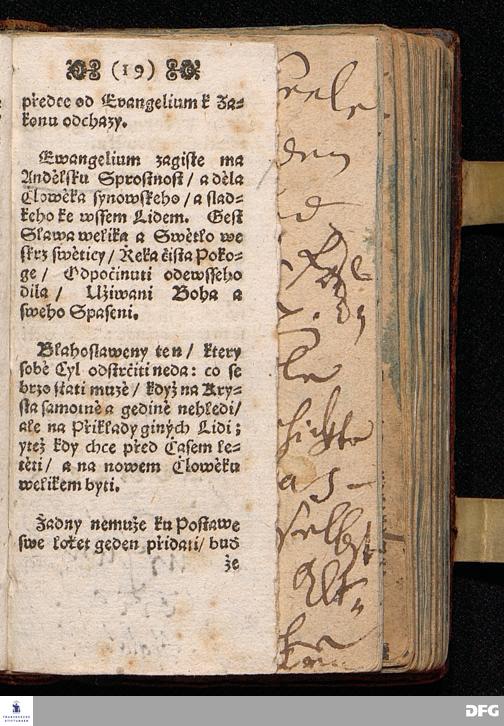 (19)
předce od Evangelium k Za=
konu odchazy.
Ewangelium zagiste ma
Andělsku Sprostnost / a děla
Člowěka synowskeho / a slad=
keho ke wssem Lidem. Gest
Slawa welika a Swětlo we
skrz swěticy / Reka čista Poko=
ge / Odpočinuti odewsseho
dila / Užiwani Boha a
sweho Spaseni.
Blahoslaweny ten / ktery
sobě Cyl odstrčiti neda: co se
brzo stati muže / když na Kry=
sta samotně a gedině nehledi /
ale na Přiklady giných Lidi ;
ytež kdy chce před Časem le=
těti / a na nowem Člowěku
welikem byti.
Žadny nemuže ku Postawe
swe loket geden přidati / bud
že
den
d
le
a s -
selbst
FRANCKESCHE
STIFTUNGEN
DFG